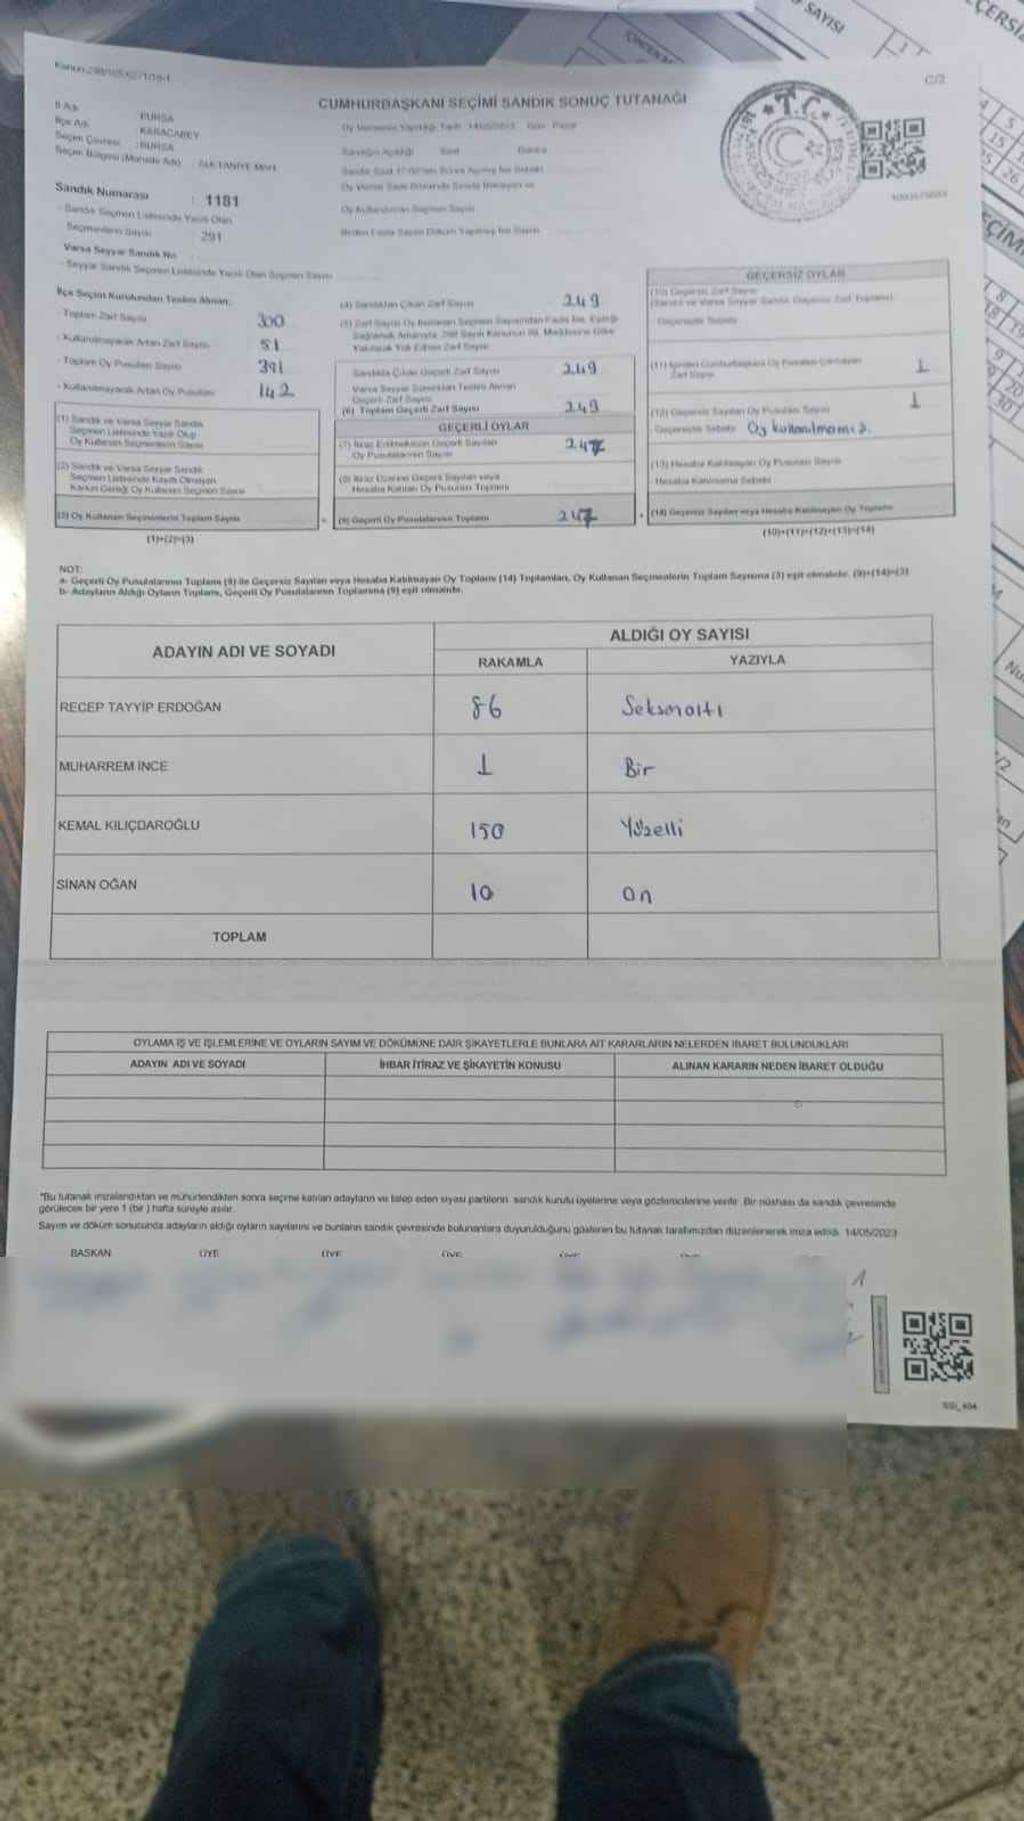 Kanun:298/105,6271/19-1
C/2
CUMHURBAŞKANI SEÇİMİ SANDIK SONUÇ TUTANAĞI
İl Adı BURSA
İlçe Adı KARACABEY
Seçim Çevresi : BURSA
Seçim Bölgesi (Mahalle Adı) : SULTANİYE MAH.
Sandık Numarası : 1181
- Sandık Seçmen Listesinde Yazılı Olan
Seçmenlerin Sayısı 291
Varsa Seyyar Sandık No
- Seyyar Sandık Seçmen Listesinde Yazılı Olan Seçmen Sayısı
T.C.
İlçe Seçim Kurulundan Teslim Alınan:
- Toplam Zarf Sayısı 300
- Kullanılmayarak Artan Zarf Sayısı 51
- Toplam Oy Pusulası Sayısı 391
- Kullanılmayarak Artan Oy Pusulası 142
(1) Sandık ve Varsa Seyyar Sandık
Seçmen Listesinde Yazılı Olup
Oy Kullanan Seçmenlerin Sayısı
(2) Sandık ve Varsa Seyyar Sandık
Seçmen Listesinde Kayıtlı Olmayan
Kanun Gereği Oy Kullanan Seçmen Sayısı
(3) Oy Kullanan Seçmenlerin Toplam Sayısı
(1)+(2)=(3)
(4) Sandıktan Çıkan Zarf Sayısı 249
Sandıkta Çıkan Geçerli Zarf Sayısı 249
Varsa Seyyar Sandıktan Teslim Alınan
Geçerli Zarf Sayısı
(6) Toplam Geçerli Zarf Sayısı 249
GEÇERLİ OYLAR
(7) İtiraz Edilmeksizin Geçerli Sayılan
Oy Pusulalarının Sayısı 247
(8) İtiraz Üzerine Geçerli Sayılan veya
Hesaba Katılan Oy Pusulası Toplamı
(9) Geçerli Oy Pusulalarının Toplamı 247
GEÇERSİZ OYLAR
(10) Geçersiz Zarf Sayısı
(11) İçinden Cumhurbaşkanı Oy Pusulası Çıkmayan
Zarf Sayısı 1
(12) Geçersiz Sayılan Oy Pusulası Sayısı 1
Geçersizlik Sebebi Oy kullanılmamış.
(13) Hesaba Katılmayan Oy Pusulası Sayısı
Hesaba Katılmama Sebebi
(14) Geçersiz Sayılan veya Hesaba Katılmayan Oy Toplamı
(10)+(11)+(12)+(13)=(14)
NOT:
a- Geçerli Oy Pusulalarının Toplamı (9) ile Geçersiz Sayılan veya Hesaba Katılmayan Oy Toplamı (14) Toplamları, Oy Kullanan Seçmenlerin Toplam Sayısına (3) eşit olmalıdır. (9)+(14)=(3)
b- Adayların Aldığı Oyların Toplamı, Geçerli Oy Pusulalarının Toplamına (9) eşit olmalıdır.
ADAYIN ADI VE SOYADI
ALDIĞI OY SAYISI
RAKAMLA YAZIYLA
RECEP TAYYİP ERDOĞAN 86 Seksenaltı
MUHARREM İNCE 1 Bir
KEMAL KILIÇDAROĞLU 150 Yüzelli
SİNAN OĞAN 10 On
TOPLAM
OYLAMA İŞ VE İŞLEMLERİNE VE OYLARIN SAYIM VE DÖKÜMÜNE DAİR ŞİKAYETLERLE BUNLARA AİT KARARLARIN NELERDEN İBARET BULUNDUKLARI
ADAYIN ADI VE SOYADI İHBAR İTİRAZ VE ŞİKAYETİN KONUSU ALINAN KARARIN NEDEN İBARET OLDUĞU
*Bu tutanak imzalandıktan ve mühürlendikten sonra seçime katılan adayların ve talep eden siyasi partilerin sandık kurulu üyelerine veya gözlemcilerine verilir. Bir nüshası da sandık çevresinde
görülecek bir yere 1 (bir) hafta süreyle asılır.
Sayım ve döküm sonucunda adayların aldığı oyların sayılarını ve bunların sandık çevresinde bulunanlara duyurulduğunu gösteren bu tutanak tarafımızdan düzenlenerek imza edildi. 14/05/2023
BAŞKAN ÜYE ÜYE ÜYE